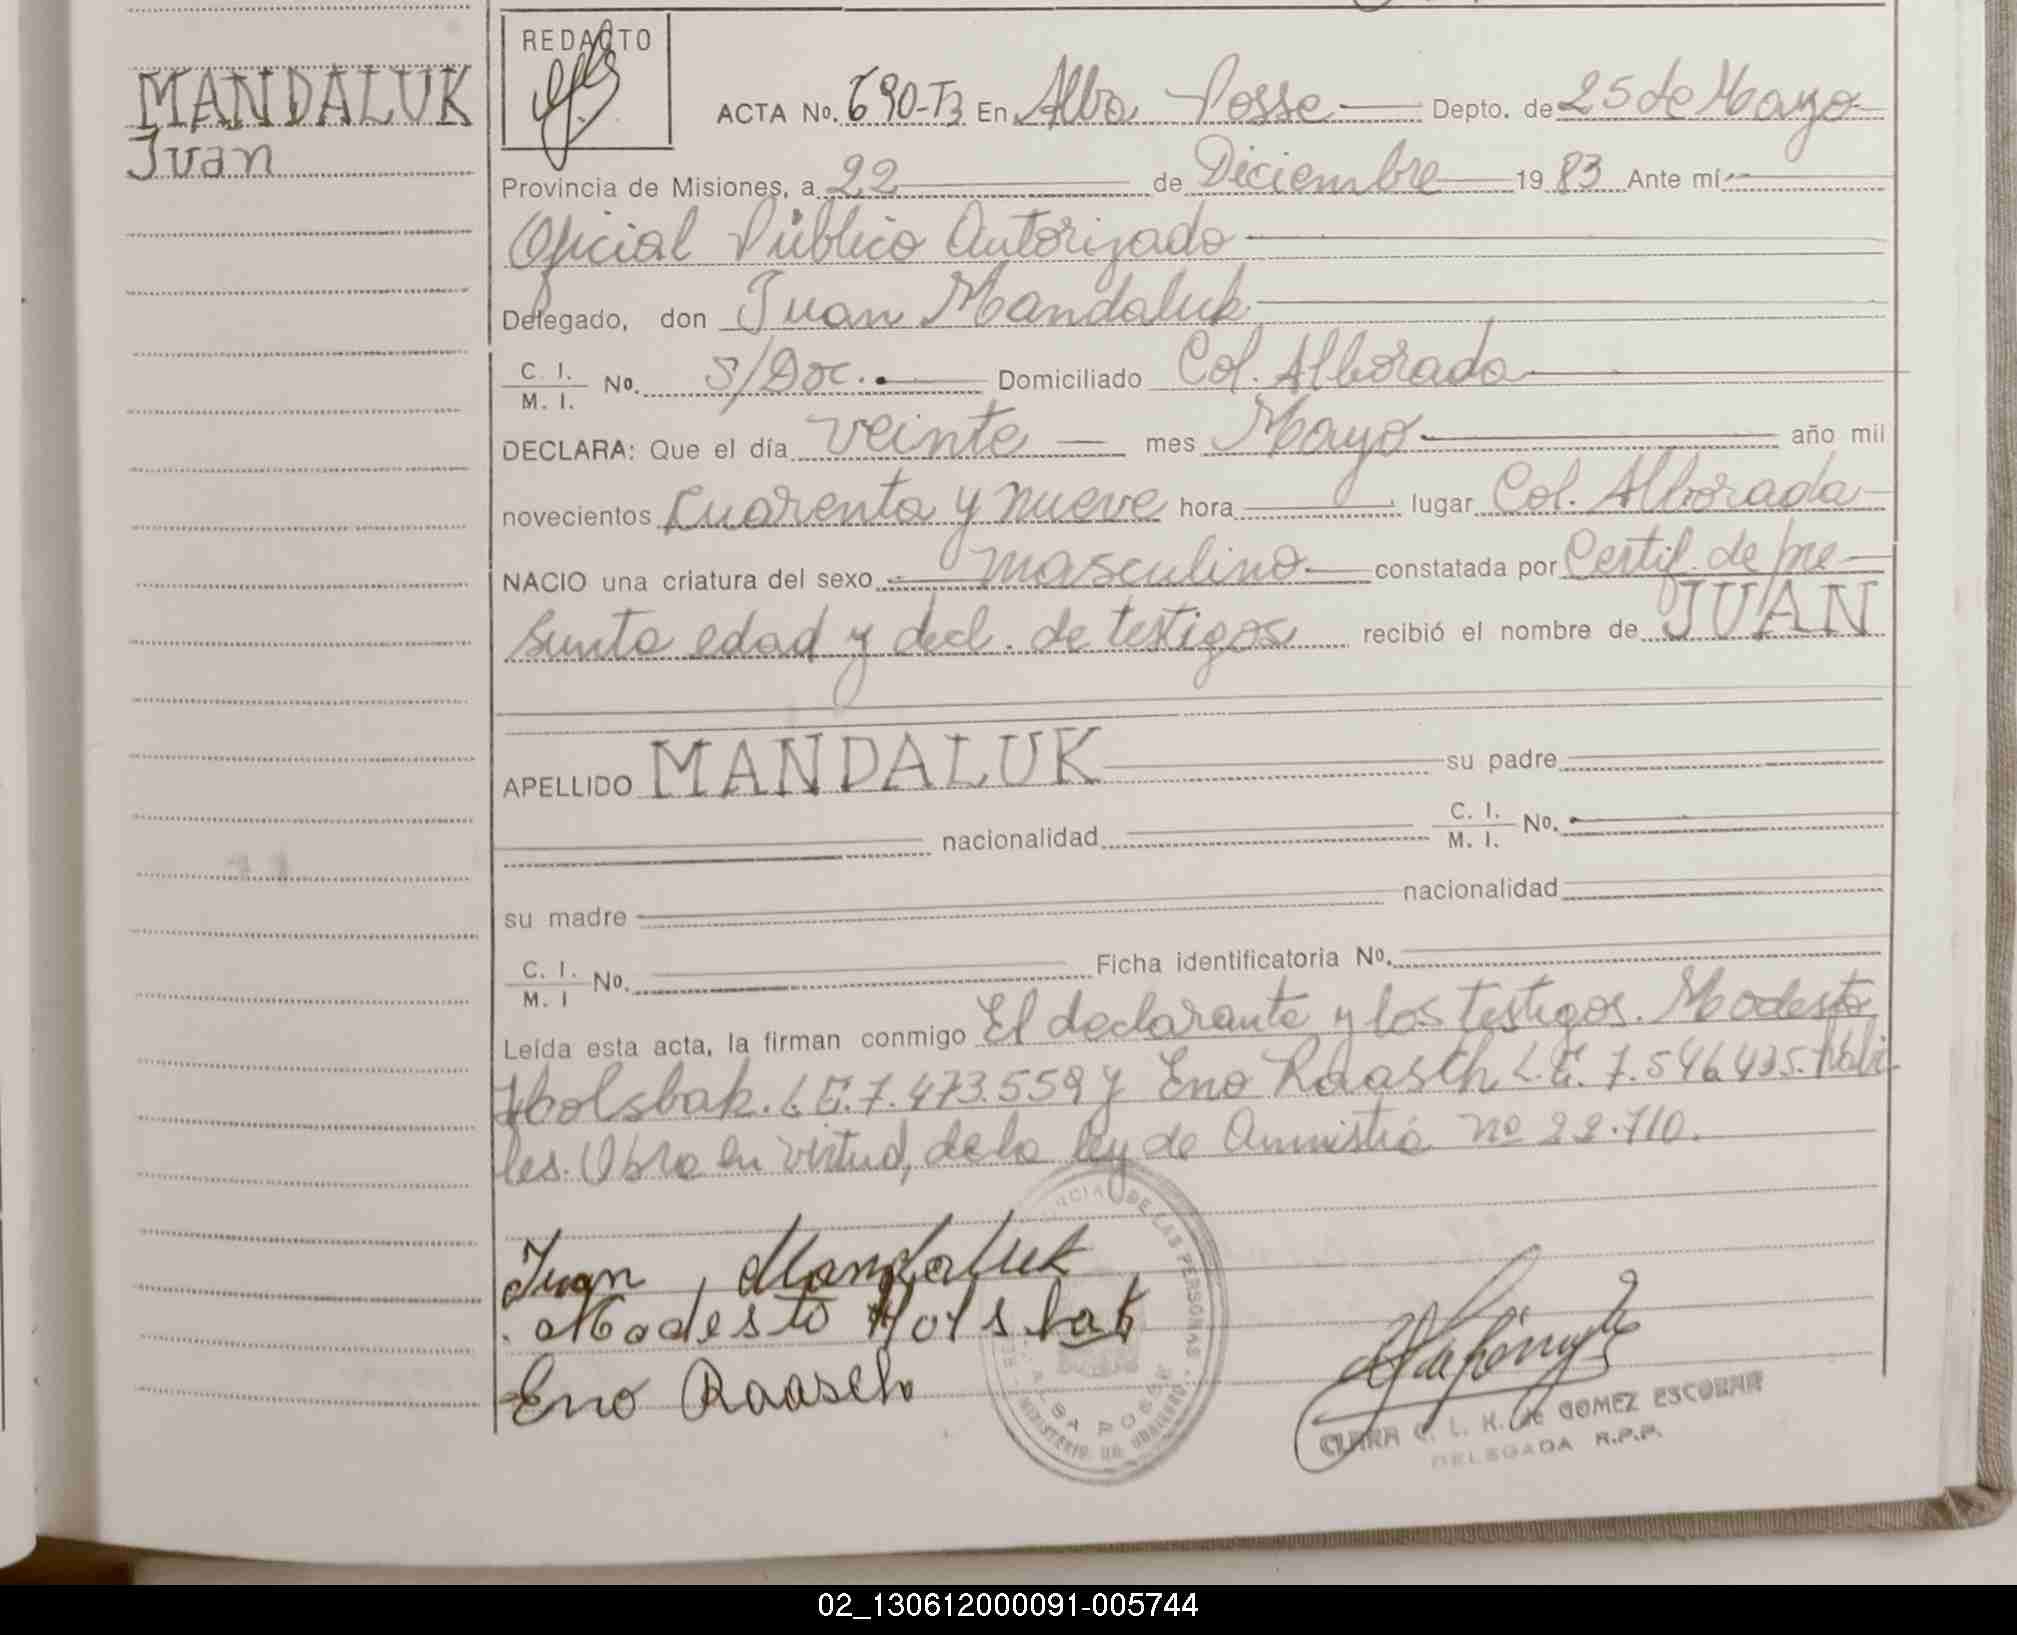 MANDALUK
Juan
REDACTO
ACTA No. 690-T3 En Alba Posse Depto. de 25 de Mayo
Provincia de Misiones, a 22 de Diciembre 19 83 Ante mí
Oficial Público Autorizado
Delegado, don Juan Mandaluk
C. I.
M. I. No. S/Doc. Domiciliado Col. Alborada
DECLARA: Que el día veinte mes Mayo año mil
novecientos Cuarenta y nueve hora lugar Col. Alborada
NACIO una criatura del sexo masculino constatada por Certif. de pre-
sunta edad y decl. de testigos recibió el nombre de JUAN
APELLIDO MANDALUK su padre
nacionalidad C. I.
M. I. No.
su madre nacionalidad
C. I.
M. I No. Ficha identificatoria No.
Leída esta acta, la firman conmigo El declarante y los testigos. Modesto
Holsbak. L.E. 7.473.559 y Eno Raasch L.E. 7.546.435. hábi-
les. Obra en virtud, de la ley de Amnistía nº 22.710.
Juan Mandaluk
Modesto Holsbak
Eno Raasch
DE LAS PERSONAS
ALBA POSSE
MINISTERIO DE GOBIERNO
CLARA C. L. K. de GOMEZ ESCOBAR
DELEGADA R.P.P.
02_130612000091-005744